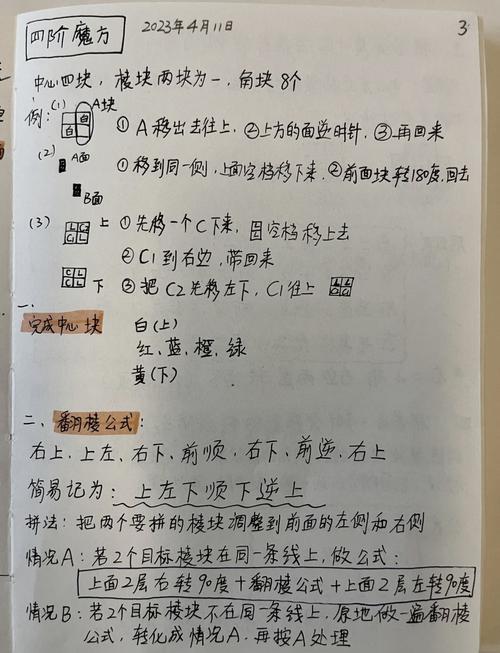 四阶魔方 2023年4月11日 3
中心四块，棱块两块为一，角块8个
例：(1) A块
白
白
① A移出去往上，②上方的面逆时针，③再回来
(2) A面
B面
①移到同一侧，上面空档移下来，②前面块转180度，回去
(3) 上 ①先移一个C下来，空档移上去
②C1到右边，带回来
下 ③把C2先移左下，C1往上
一、
完成中心块 白(上)
红、蓝、橙、绿
黄(下)
二、翻棱公式：
右上，上左、右下、前顺，右下，前逆，右上
简易记为：上左下顺下逆上
拼法：把两个要拼的棱块调整到前面的左侧和右侧
情况A：若2个目标棱块在同一条线上，做公式：
上面2层右转90度+翻棱公式+上面2层左转90度
情况B：若2个目标棱块不在同一条线上，原地做一遍翻棱
公式，转化成情况A，再按A处理